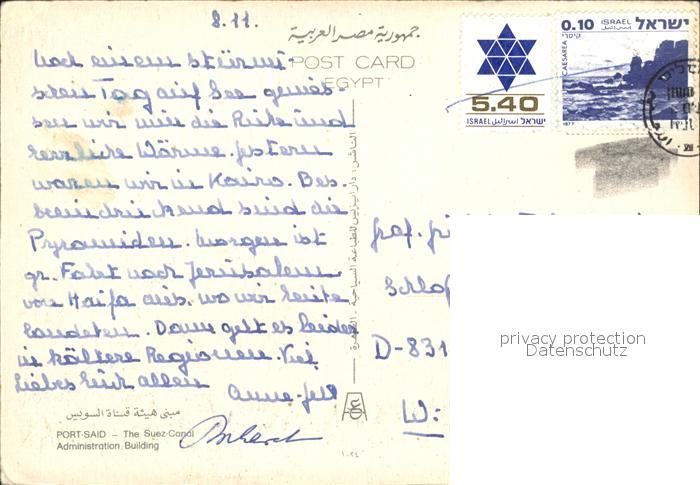 8.11.
جمهورية مصر العربية
POST CARD
EGYPT
Nach einem stürmi-
schen Tag auf See genies-
sen wir nun die Ruhe und
herrliche Wärme. Gestern
waren wir in Kairo. Bes.
beeindruckend sind die
Pyramiden. Morgen ist
gr. Fahrt nach Jerusalem
von Haifa aus, wo wir heute
landeten. Dann geht es leider
in kältere Regionen. Viel
Liebes Euch allen
مبنى هيئة قناة السويس
PORT-SAID – The Suez-Canal
Administration Building
١٠٢٤
5.40
ISRAEL اسرائيل ישראל
0.10 ISRAEL ישראל
קיסרי
CAESAREA
1977
Schloß
D-831
W:
privacy protection
Datenschutz